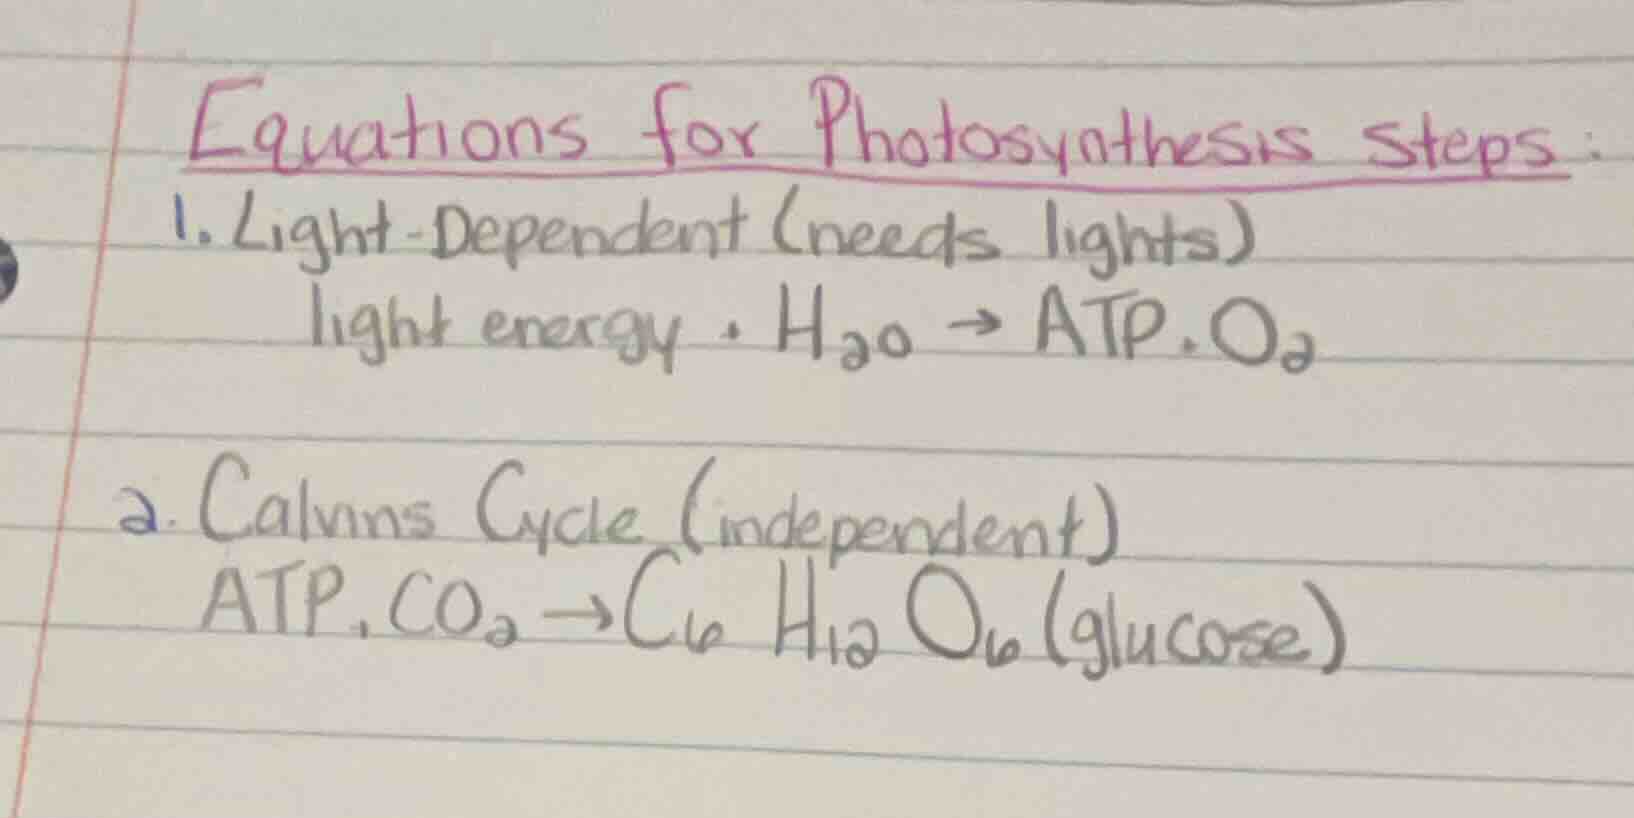 Equations for Photosynthesis steps:
1. Light-Dependent (needs lights)
light energy · H₂O → ATP. O₂
2. Calvins Cycle (independent)
ATP. CO₂ → C₆ H₁₂ O₆ (glucose)